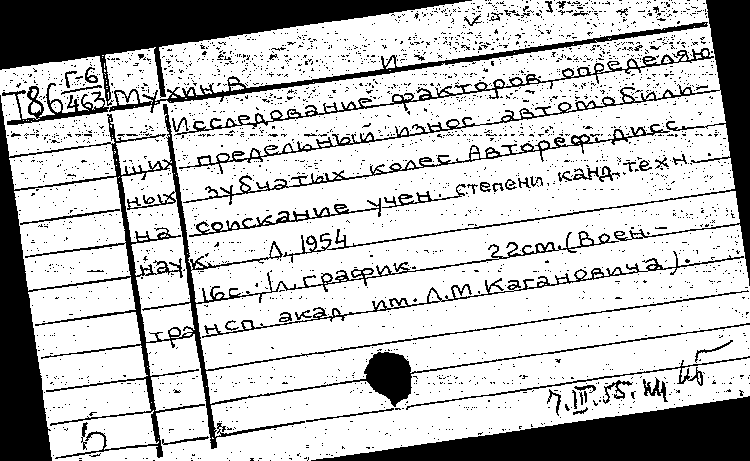 Г-6
Т86 463 Мухин, В И
Исследование факторов, определяю
щих предельный износ автомобили-
ных зубчатых колес. Автореф. дисс.
на соискание учен. степени канд. техн.
наук. Л., 1954
16с.; 1л. график. 22см. (Воен.-
трансп. акад. им. Л.М. Кагановича).
7.III.55.
Б